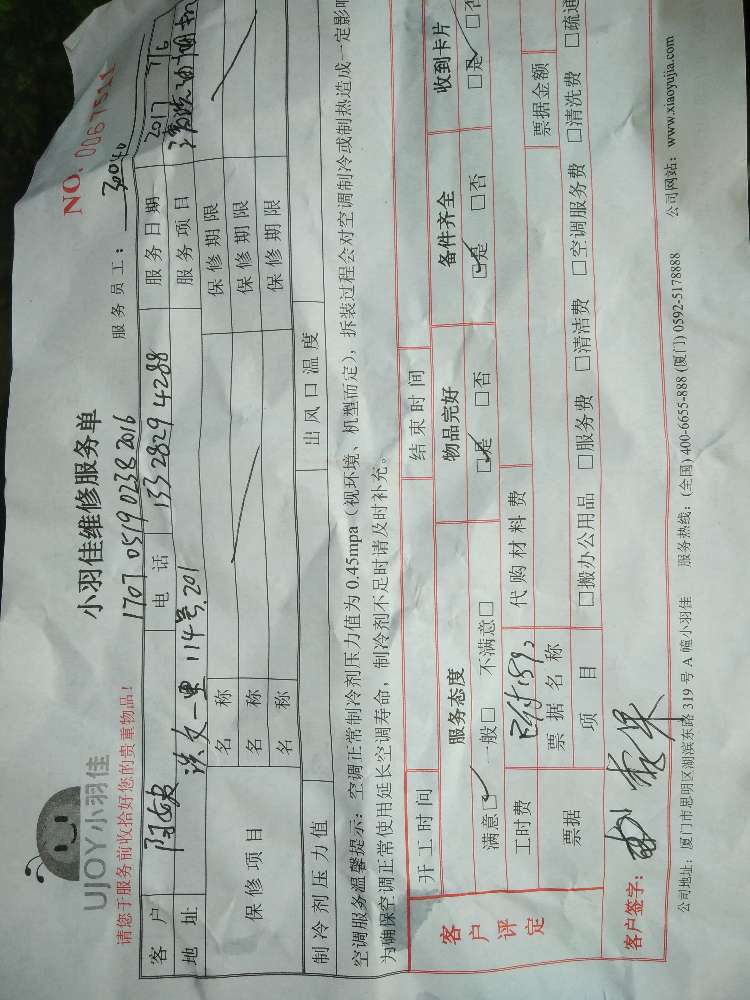 UJOY小羽佳
小羽佳维修服务单
NO. 0067511
请您于服务前收拾好您的贵重物品！
1707 0519 0238 2016
服务员工：
客户 电话 133 2829 4288 服务日期 2017 7/6
地址 洪文一里 114号.201 服务项目 清洗油烟机
保修项目
名称 保修期限
名称 保修期限
名称 保修期限
制冷剂压力值 出风口温度
空调服务温馨提示：空调正常制冷剂压力值为 0.45mpa（视环境、机型而定），拆装过程会对空调制冷或制热造成一定影响
为确保空调正常使用延长空调寿命，制冷剂不足时请及时补充。
开工时间 结束时间
客户评定
服务态度 物品完好 备件齐全 收到卡片
满意□✓ 一般□ 不满意□ □✓是 □否 □✓是 □否 □✓是 □否
工时费 已付159 代购材料费
票据 票据名称 票据金额
项目 □搬办公用品 □服务费 □清洁费 □空调服务费 □清洗费 □疏通
客户签字：
公司地址：厦门市思明区湖滨东路 319 号 A 幢小羽佳 服务热线：(全国) 400-6655-888 (厦门) 0592-5178888 公司网站：www.xiaoyujia.com